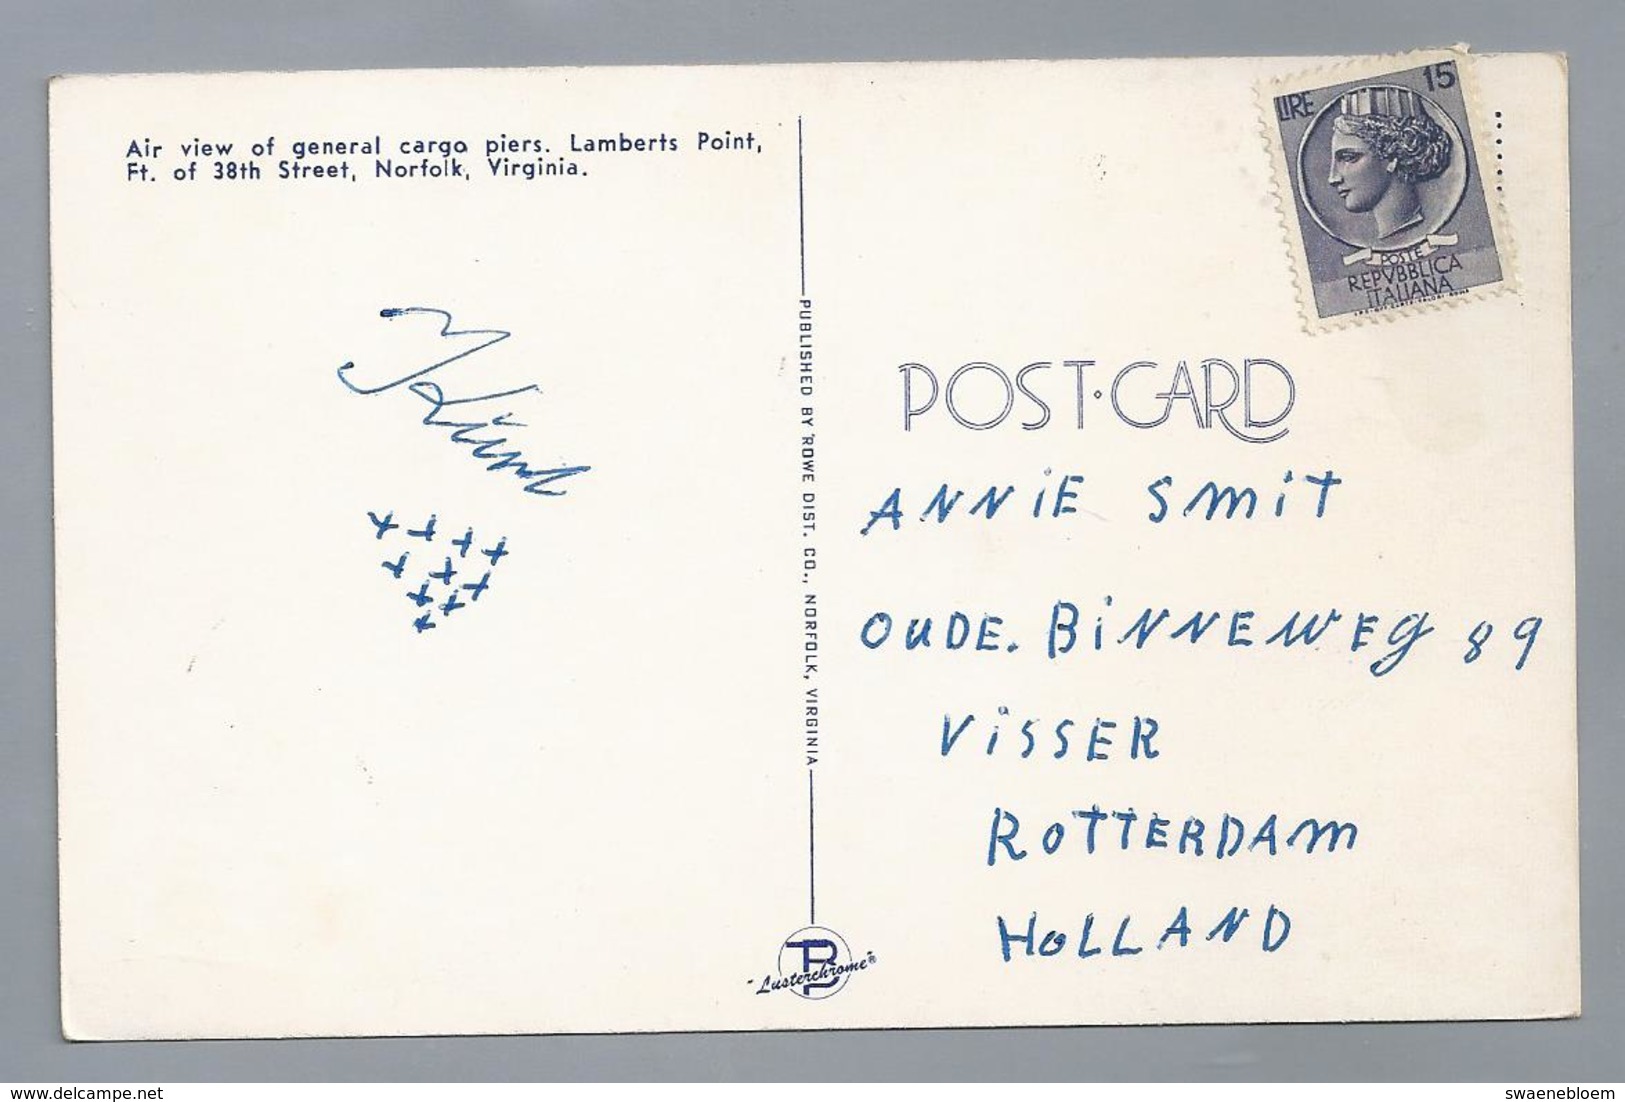 Air view of general cargo piers. Lamberts Point,
Ft. of 38th Street, Norfolk, Virginia.
LIRE 15
POSTE
REPVBBLICA
ITALIANA
POST·CARD
PUBLISHED BY ROWE DIST. CO., NORFOLK, VIRGINIA
ANNiE SMiT
OUDE. BiNNEWEG 89
ViSSER
ROTTERDAM
HOLLAND
"Lusterchrome"®
www.delcampe.net
swaenebloem